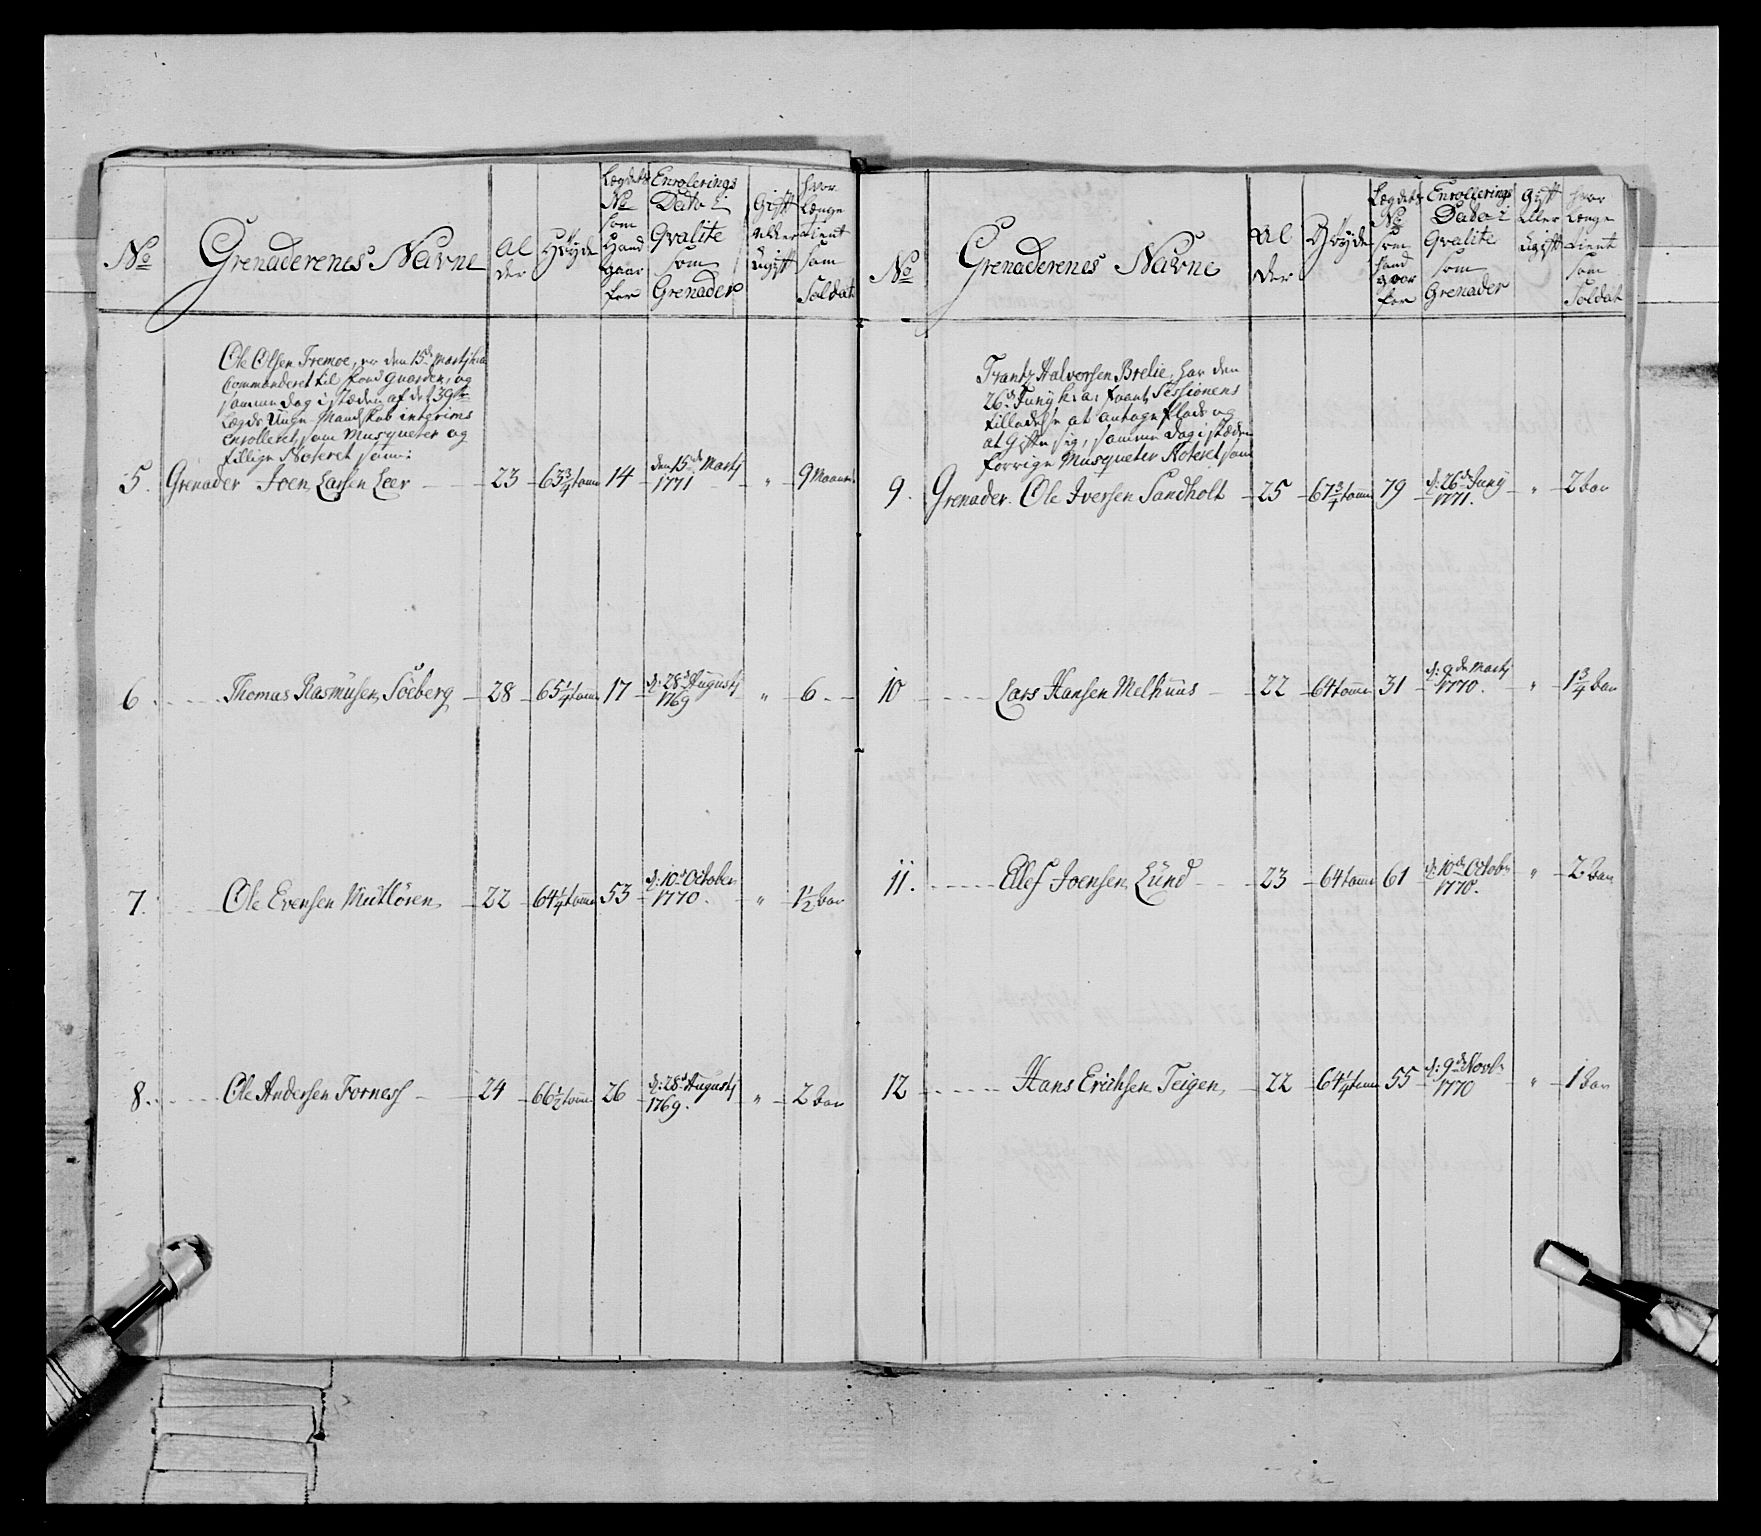 No
Grenaderenes Navne
Al
der
Höyde
Lægdets
No
som
Hand
gaar
for
Enrolerings
Dato i
Qvalite
som
Grenader
Gift
eller
Ugift
hvor
længe
tient
som
Soldat
Ole Olsen Tremoe, er den 15de Martj h: a:
Commanderet til Fod Guarden, og
samme dag i stæden af det 39te
Lægds Unge Mandskab interims
enrolleret som Musqueter og
tillige Noteret som:
5. Grenader Joen Larsen Leer 23 63 3/4 tomme 14 den 15de Martj 1771 " 9 Maaner
6 Thomas Rasmusen Söeberg 28 65 1/4 tomme 17 d: 28de Augustj 1769 " 6
7. Ole Evensen 22 64 1/4 tomme 53 d: 10de October 1770. " 1 1/2 Aar
8. Ole Andersen Forness 24 66 1/2 tomme 26 d: 28de Augustj 1769. " 2 Aar
No
Grenaderenes Navne
Al
der
Höyde
Lægdets
No
som
Hand
gaar
for
Enrollerings
Dato i
Qvalite
som
Grenader
Gift
eller
Ugift
hvor
længe
tient
som
Soldat
Frantz Halvorsen Brelie, har den
26de Junij h: a: faaet Sessionens
tilladelse at antage Plads og
at gifte sig, samme dag i stæden
forrige Musqueter Noteret som
9. Grenader Ole Iversen Sandholt 25 67 3/4 tomme 79 d: 26de Junij 1771. " 2 Aar
10 Lars Hansen Melhuus 22 64 tomme 31 d: 9de Martj 1770. " 1 3/4 Aar
11. Ellef Joensen Lund 23 64 tomme 61 d: 10de Octobr 1770. " 2 Aar
12 Hans Erichsen Teigen 22 64 1/4 tomme 55 d: 9de Novbr 1770 " 1 Aar